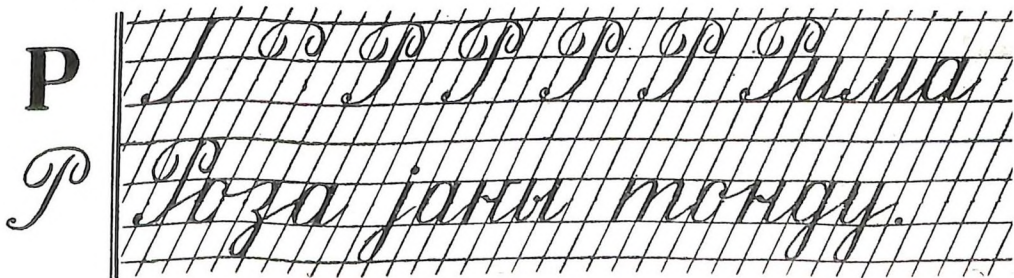 Р Р Р Р Р Рима
Р Роза јаны тонду.